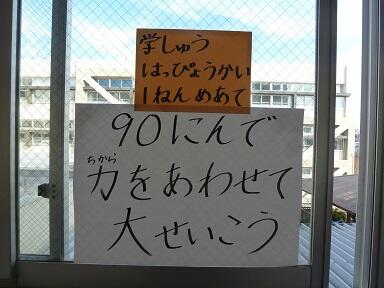 学しゅう
はっぴょうかい
1ねんめあて
90にんで
ちから
力をあわせて
大せいこう